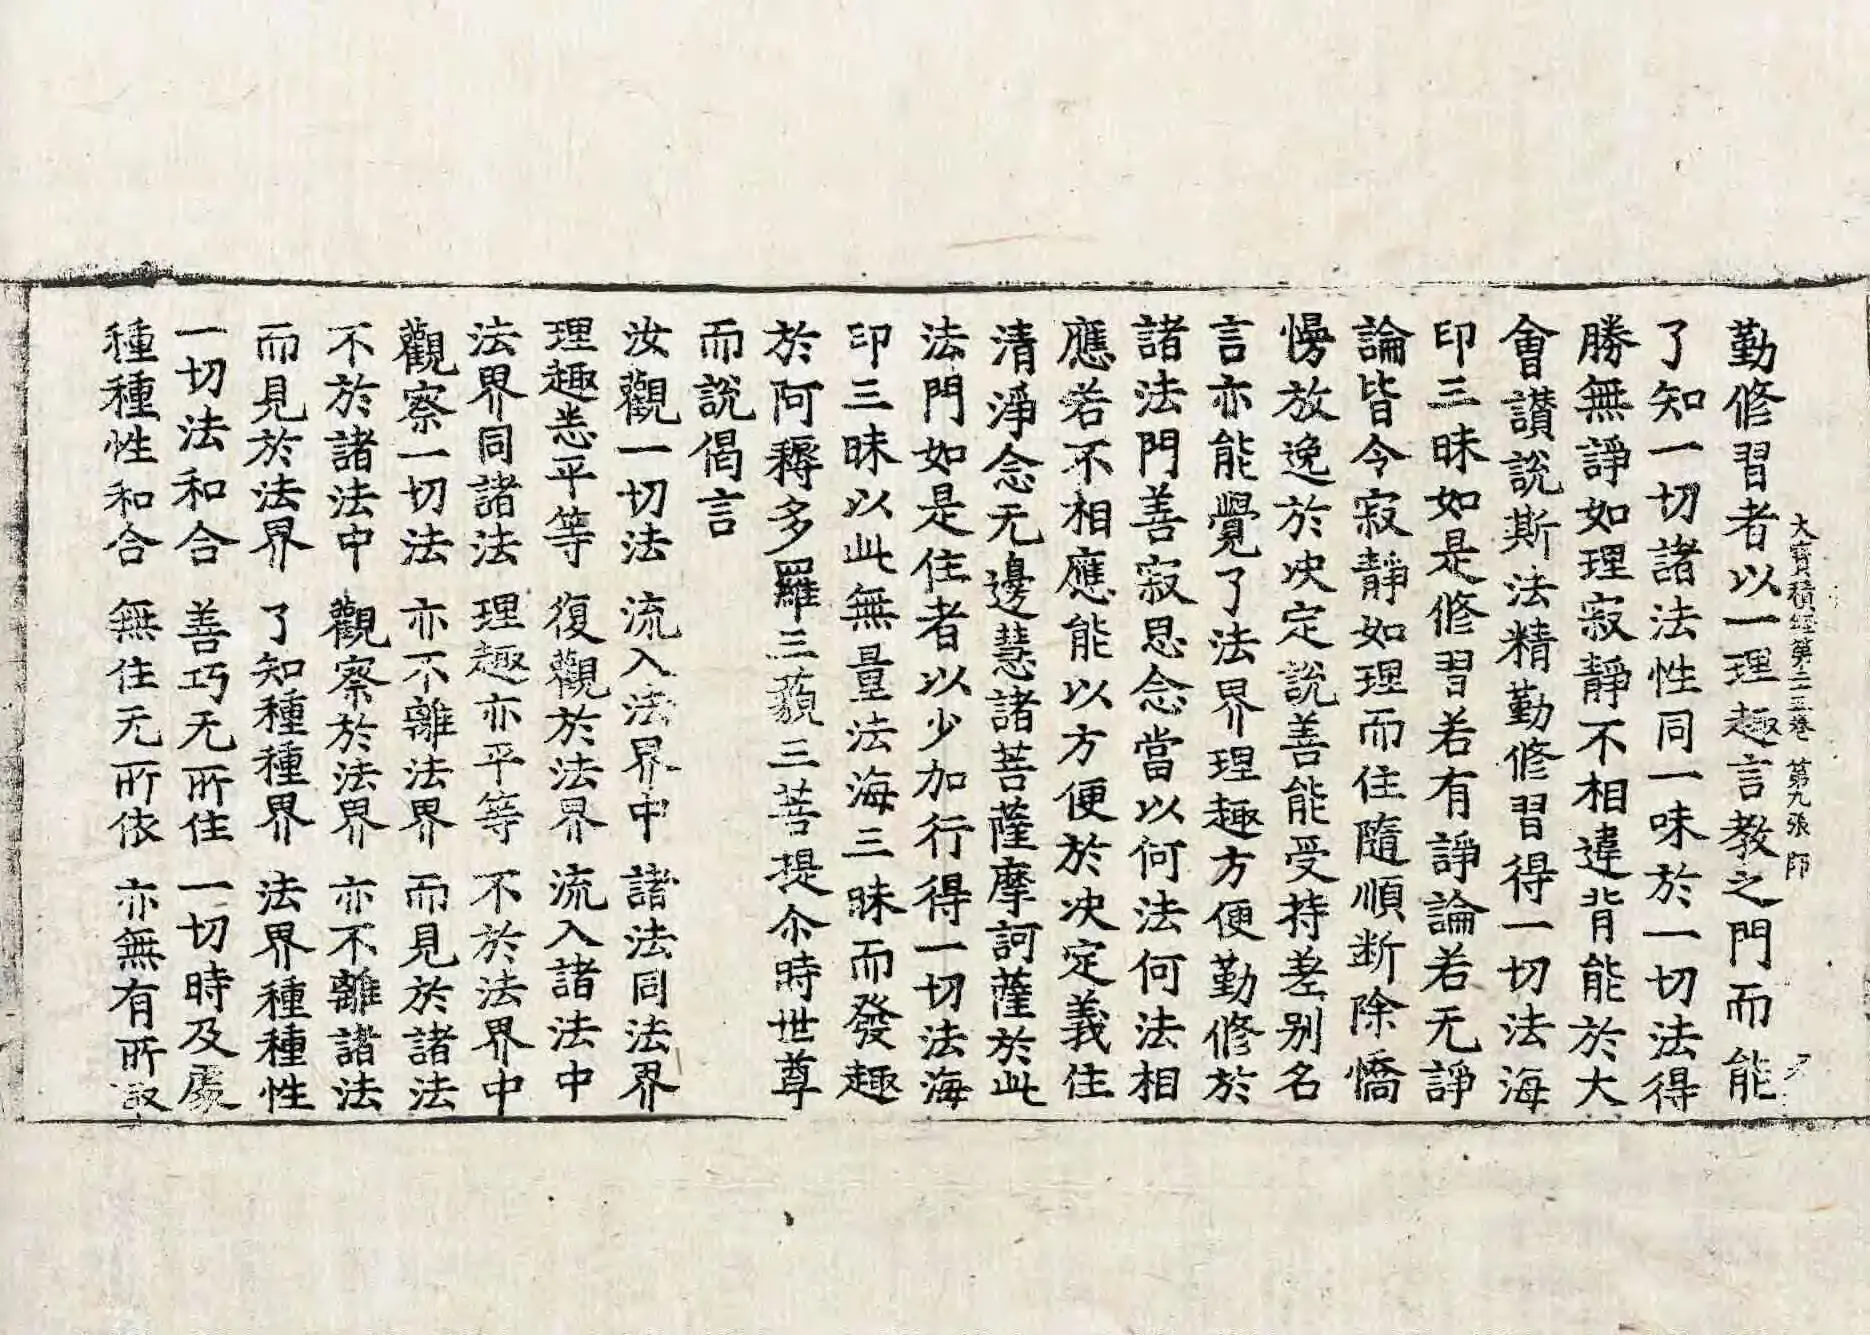 大寶積經第二五卷 第九張 師
勤修習者以一理趣言教之門而能
了知一切諸法性同一味於一切法得
勝無諍如理寂靜不相違背能於大
會讚說斯法精勤修習得一切法海
印三昧如是修習若有諍論若无諍
論皆令寂靜如理而住隨順斷除憍
慢放逸於决定說善能受持差别名
言亦能覺了法界理趣方便勤修於
諸法門善寂思念當以何法何法相
應若不相應能以方便於决定義住
清淨念无邊慧諸菩薩摩訶薩於此
法門如是住者以少加行得一切法海
印三昧以此無量法海三昧而發趣
於阿耨多羅三藐三菩提尒時世尊
而說偈言
汝觀一切法 流入法界中 諸法同法界
理趣悉平等 復觀於法界 流入諸法中
法界同諸法 理趣亦平等 不於法界中
觀察一切法 亦不離法界 而見於諸法
不於諸法中 觀察於法界 亦不離諸法
而見於法界 了知種種界 法界種種性
一切法和合 善巧无所住 一切時及處
種種性和合 無住无所依 亦無有所取